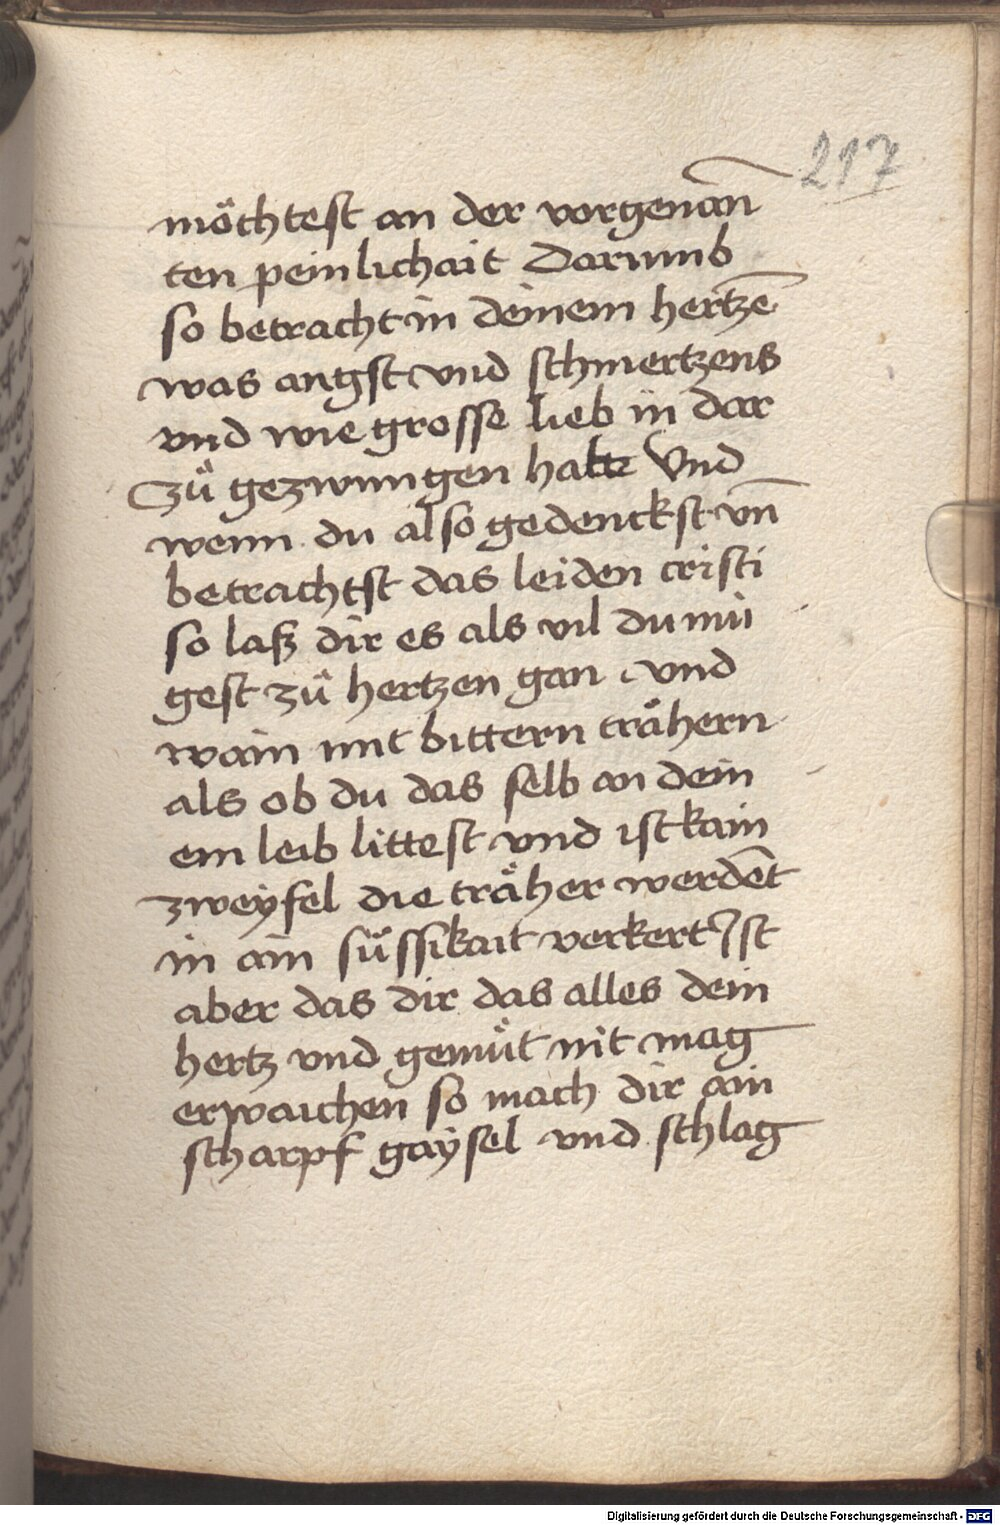 217
möchtest an der vorgenan̄
ten peinlichait Darumb
so betracht in deinem hertzē
was angst vnd schmertzens
vnd wie grosse lieb in dar
zů gezwungen hatte Vnd
wenn du also gedenckst vn̄
betrachtst das leiden cristi
so laß dir es als vil du mü
gest zů hertzen gan vnd
wain mit bittern trähern
als ob du das selb an dein
em leib littest vnd ist kain
zweyfel die träher werdēt
in ain süssikait verkert Ist
aber das dir das alles dein
hertz vnd gemüt nit mag
erwaichen so mach dir ain
scharpf gaysel vnd schlag
Digitalisierung gefördert durch die Deutsche Forschungsgemeinschaft - DFG